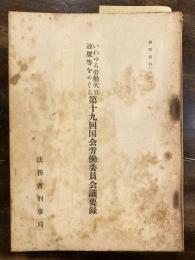 いわゆる労働次官
通牒等をめぐる
第十九回国会労働委員会議要録
法務省刑事局